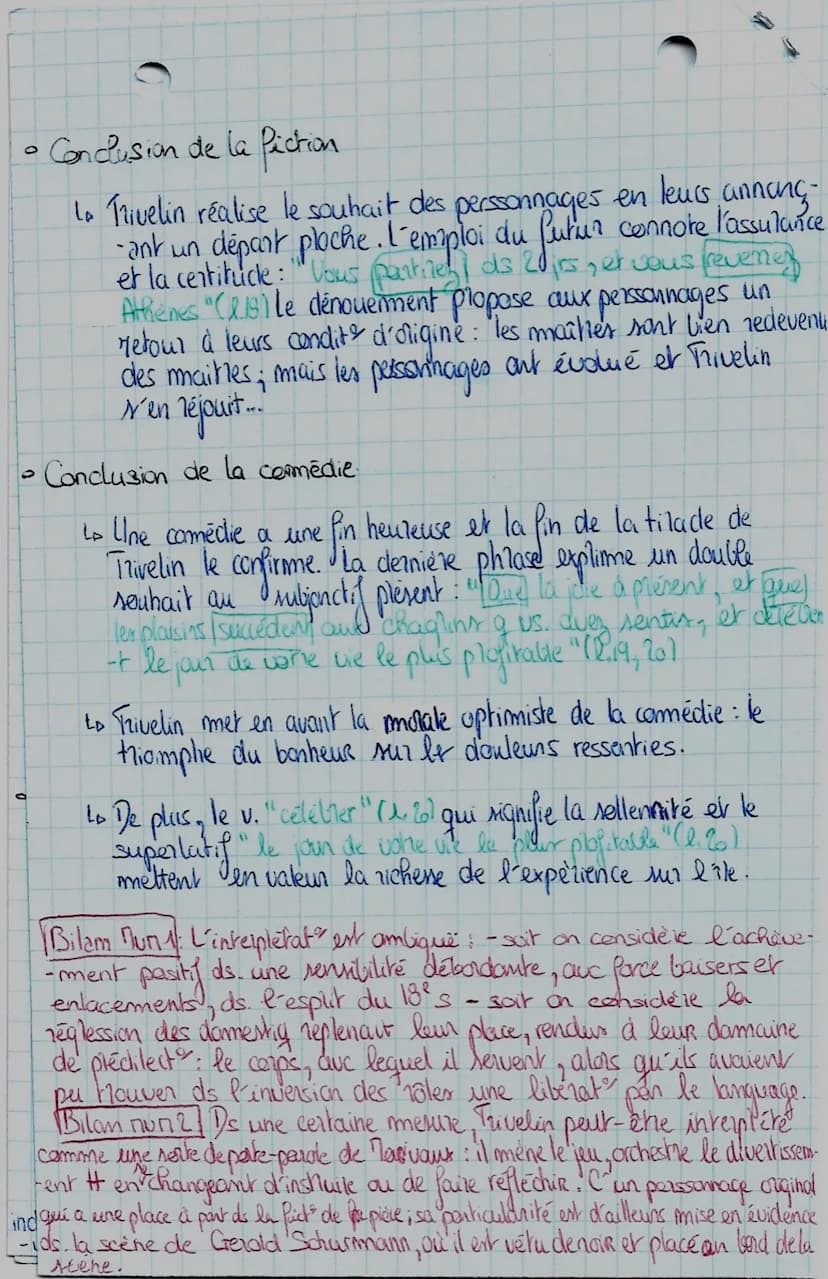 ° Conclusion de la fiction
↳ Trivelin réalise le souhait des perssonnages en leurs annonç-
-ant un départ proche. L'emploi du futur connote l'assurance
et la certitude : "Vous partirez ds 2 jrs, et vous reverrez
Athènes" (l.19) Le dénouement propose aux perssonnages un
retour à leurs condit° d'origine : les maîtres sont bien redevenu
des maîtres ; mais les perssonnages ont évolué et Trivelin
s'en réjouit...
° Conclusion de la comédie
↳ Une comédie a une fin heureuse et la fin de la tirade de
Trivelin le confirme. La dernière phrase exprime un double
souhait au subjonctif présent : "Que la joie à présent, et que
les plaisirs succèdent aux chagrins q vs. avez sentis, et célèbren
-t le jour de votre vie le plus profitable" (l.19, 20)
↳ Trivelin met en avant la morale optimiste de la comédie : le
triomphe du bonheur sur les douleurs ressenties.
↳ De plus, le v. "célébrer" (l. 20) qui signifie la sollennité et le
superlatif "le jour de votre vie le plus profitable" (l.20)
mettent en valeur la richesse de l'expérience sur l'île.
Bilan mvn 1 : L'interprétat° est ambiguë : - soit on considère l'achève-
-ment positif ds. une sensibilité débordante, avc force baisers et
enlacements, ds. l'esprit du 18e s - soit on considère la
régression des domestiq reprenant leur place, rendus à leur domaine
de prédilect° : le corps, avc lequel il servent, alors qu'ils avaient
pu trouver ds l'inversion des rôles une libérat° par le language.
Bilan mvn 2 Ds une certaine mesure, Trivelin peut-être interprété
comme une sorte de porte-parole de Marivaux : il mène le jeu, orchestre le divertissem-
-ent # en changeant d'instruire ou de faire réfléchir. C' un perssonnage original
qui a une place à part ds la fict° de la pièce ; sa particularité est d'ailleurs mise en évidence
ds. la scène de Gerold Schurmann, où il est vêtu de noir et placé au bord de la
scène.